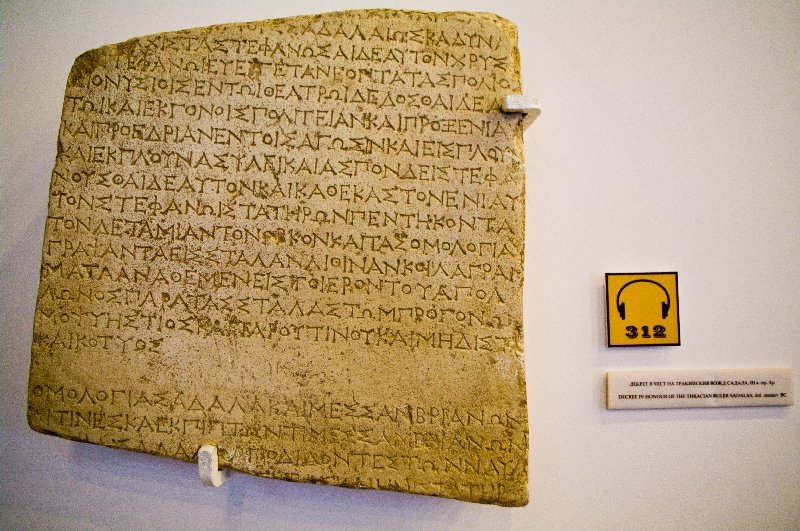 ΔΑΛΑΙΩΣΚΑΔΥΝΑ
ΑΧΙΣΤΑΣΤΕΦΑΝΩΣΑΙΔΕΑΥΤΟΝΧΡΥΣ
ΤΕΦΑΝΩΙΕΥΕΡΓΕΤΑΝΕΟΝΤΑΤΑΣΠΟΛΙΟ
ΔΙΟΝΥΣΙΟΙΣΕΝΤΩΙΘΕΑΤΡΩΙΔΕΔΟΣΘΑΙΔΕΑ
ΤΩΙΚΑΙΕΚΓΟΝΟΙΣΠΟΛΙΤΕΙΑΝΚΑΙΠΡΟΞΕΝΙΑ
ΚΑΙΠΡΟΕΔΡΙΑΝΕΝΤΟΙΣΑΓΩΣΙΝΚΑΙΕΙΣΠΛΟΥ
ΚΑΙΕΚΠΛΟΥΝΑΣΥΛΕΙΚΑΙΑΣΠΟΝΔΕΙΣΤΕΦΑ
ΝΟΥΣΘΑΙΔΕΑΥΤΟΝΚΑΙΚΑΘΕΚΑΣΤΟΝΕΝΙΑΥ
ΤΟΝΣΤΕΦΑΝΩΙΣΤΑΤΗΡΩΝΠΕΝΤΗΚΟΝΤΑ
ΤΟΝΔΕΤΑΜΙΑΝΤΟΝΟΡΚΟΝΚΑΙΤΑΣΟΜΟΛΟΓΙΑ
ΓΡΑΨΑΝΤΑΕΙΣΣΤΑΛΑΝΛΙΘΙΝΑΝΚΟΙΛΑΓΡΑΜ
ΜΑΤΑΑΝΑΘΕΜΕΝΕΙΣΤΟΙΕΡΟΝΤΟΥΑΠΟΛ
ΛΩΝΟΣΠΑΡΑΤΑΣΣΤΑΛΑΣΤΩΜΠΡΟΓΟΝΩ
ΜΟΨΥΗΣΤΙΟΣΚΑΙΤΑΡΟΥΤΙΝΟΥΚΑΙΜΗΔΙΣΤΑ
ΚΑΙΚΟΤΥΟΣ
ΟΜΟΛΟΓΙΑΣΑΔΑΛΑΚΑΙΜΕΣΣΑΜΒΡΙΑΝΩΝ
ΑΙΤΙΝΕΣΚΑΕΚΠΙΠΤΩΝΤΙΜΕΣΣΑΜΒΡΙΑΝΩΝ
ΑΠΟΔΙΔΟΝΤΕΣΤΩΝΝΑΥΛ
312
ДЕКРЕТ В ЧЕСТ НА ТРАКИЙСКИЯ ВОЖД САДАЛА, III в. пр. Хр.
DECREE IN HONOUR OF THE THRACIAN RULER SADALAS, IIIrd century BC